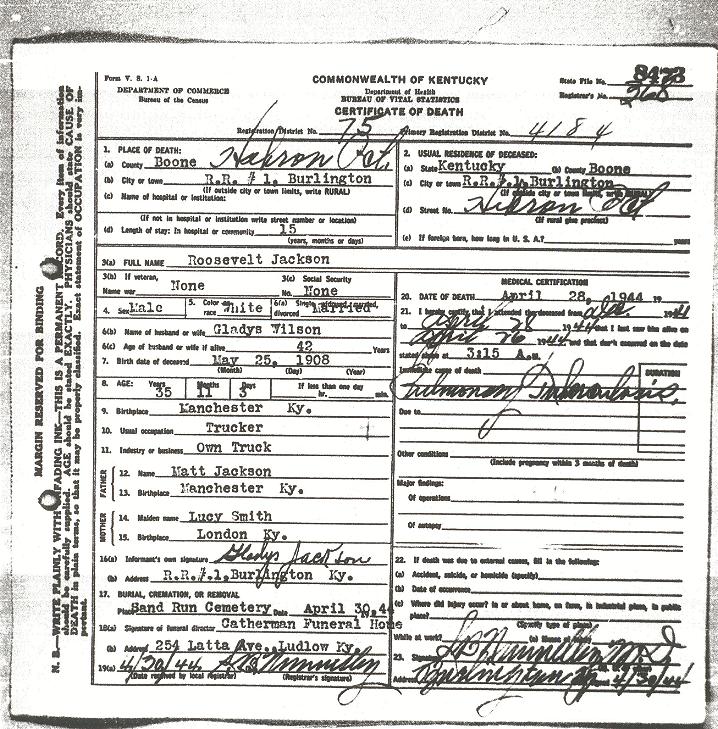 Form V. S. 1-A
DEPARTMENT OF COMMERCE
Bureau of the Census
COMMONWEALTH OF KENTUCKY
Department of Health
BUREAU OF VITAL STATISTICS
CERTIFICATE OF DEATH
State File No. 8473
Registrar's No. 268
Registration District No. 75 Primary Registration District No. 4184
1. PLACE OF DEATH:
(a) County Boone Hebron Pct.
(b) City or town R.R. # 1, Burlington
(If outside city or town limits, write RURAL)
(c) Name of hospital or institution:
(If not in hospital or institution write street number or location)
(d) Length of stay: In hospital or community 15
(years, months or days)
2. USUAL RESIDENCE OF DECEASED:
(a) State Kentucky (b) County Boone
(c) City or town R.R.# 1, Burlington
(If outside city or town limits, write RURAL)
(d) Street No. Hebron Pct
(If rural give precinct)
(e) If foreign born, how long in U. S. A.? years
3(a) FULL NAME Roosevelt Jackson
3(b) If veteran,
Name war None
3(c) Social Security
No. None
4. Sex Male 5. Color or race White 6(a) Single, widowed, married, divorced Married
6(b) Name of husband or wife Gladys Wilson
6(c) Age of husband or wife if alive 42 Years
7. Birth date of deceased May 25, 1908
(Month) (Day) (Year)
8. AGE: Years Months Days If less than one day
35 11 3 hr. min.
9. Birthplace Manchester Ky.
10. Usual occupation Trucker
11. Industry or business Own Truck
FATHER
12. Name Matt Jackson
13. Birthplace Manchester Ky.
MOTHER
14. Maiden name Lucy Smith
15. Birthplace London Ky.
16(a) Informant's own signature Gladys Jackson
(b) Address R.R.#.1,Burlington Ky.
17. BURIAL, CREMATION, OR REMOVAL
Place Sand Run Cemetery Date April 30,44
18(a) Signature of funeral director Catherman Funeral Home
(b) Address 254 Latta Ave., Ludlow Ky.
19(a) 4/30/44
(Date received by local registrar) (Registrar's signature)
MEDICAL CERTIFICATION
20. DATE OF DEATH April 28, 1944 19
21. I hereby certify, that I attended the deceased from 1944
to April 28 1944 that I last saw him alive on
April 26 1944 and that death occurred on the date
stated above at 3:15 A.M.
Immediate cause of death DURATION
Pulmonary Tuberculosis,
Due to
Other conditions
(Include pregnancy within 3 months of death)
Major findings:
Of operations
Of autopsy
22. If death was due to external causes, fill in the following:
(a) Accident, suicide, or homicide (specify)
(b) Date of occurrence
(c) Where did injury occur? in or about home, on farm, in industrial place, in public
place?
(Specify type of place)
While at work? (e) Means of
23. Signature M.D.
Address Burlington Ky 4/30/44
MARGIN RESERVED FOR BINDING
N. B.—WRITE PLAINLY WITH UNFADING INK—THIS IS A PERMANENT RECORD. Every item of information
should be carefully supplied. AGE should be stated EXACTLY. PHYSICIANS should state CAUSE OF
DEATH in plain terms, so that it may be properly classified. Exact statement of OCCUPATION is very im-
portant.